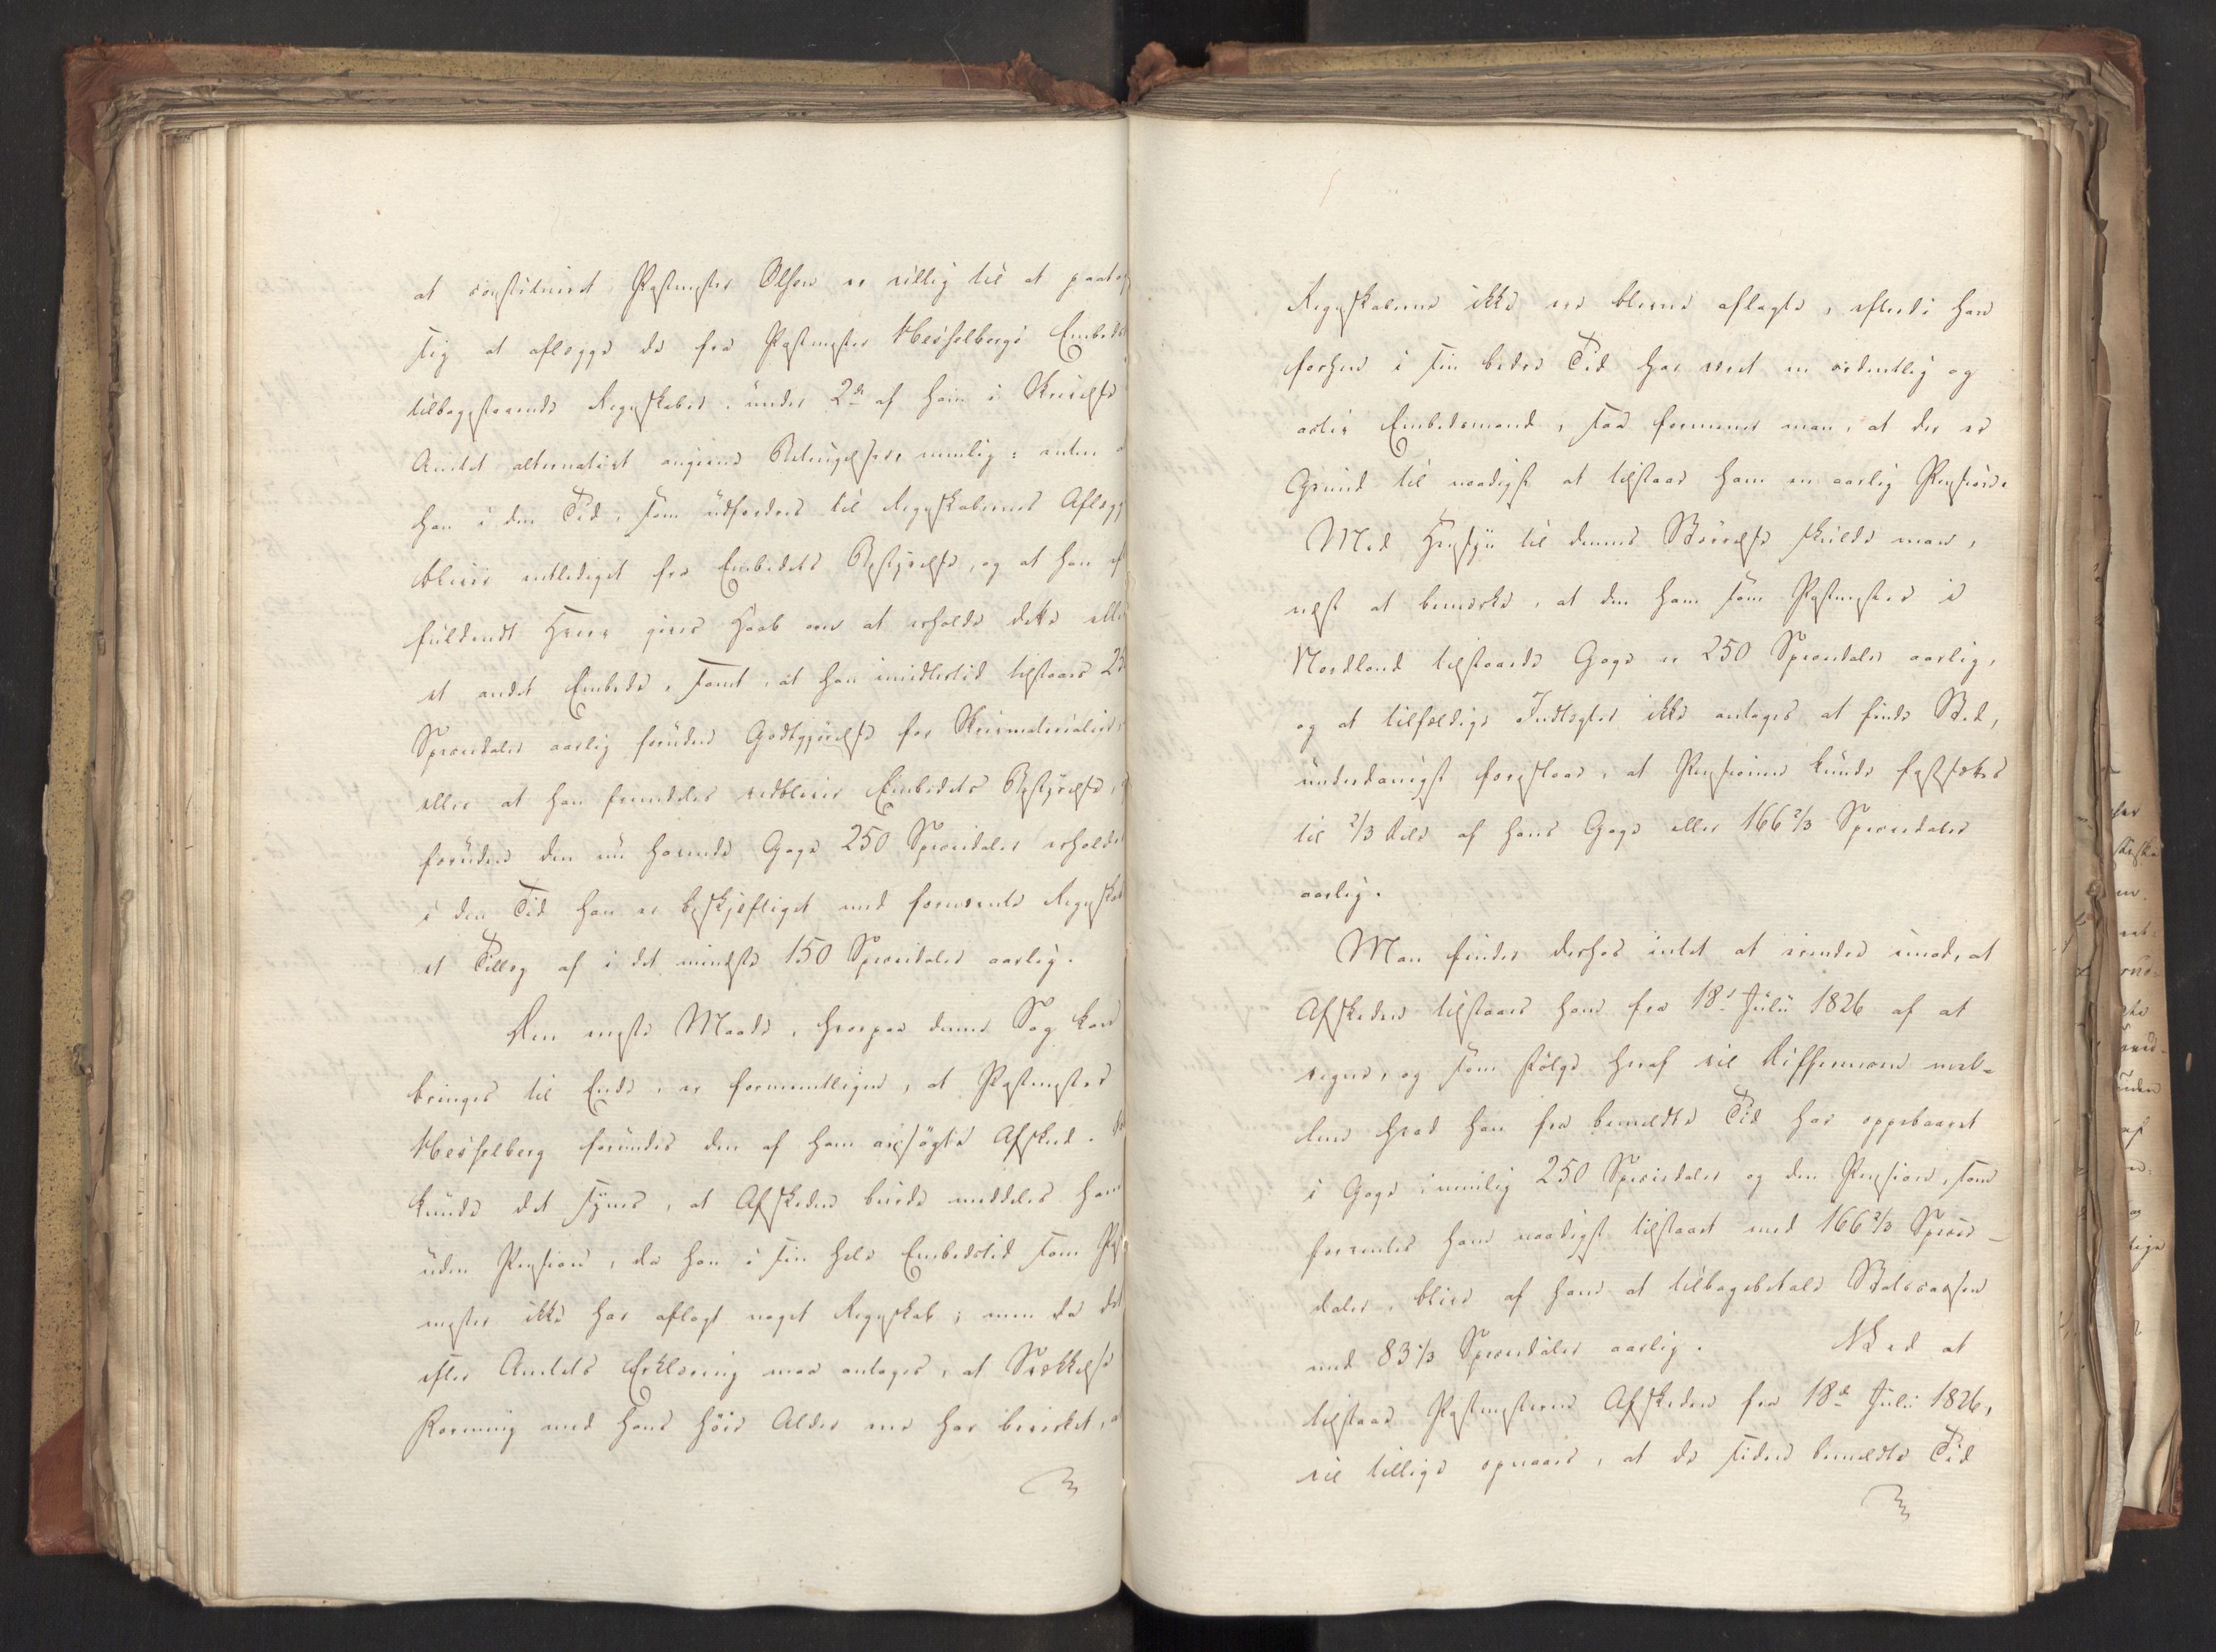 at constitueret Postmester Olsen er villig til at paata
sig at aflægge de fra Postmester Hesselbergs Embeds
tilbagestaaende Regnskaber, under 2de af ham i Skrivelse
Amtet alternativt angivne Betingelser, nemlig: enten a
han i den Tid, som udfordres til Regnskabernes Aflægg
bliver entlediget fra Embedets Bestyrelse, og at han ef
fuldendt Hverv gives Haab om at erholde dette elle
et andet Embede, samt, at han imidlertid tilstaaes 25
Speciedaler aarlig foruden Godtgjørelse for Skrivmaterialier,
eller at han fremdeles vedbliver Embedets Bestyrelse, o
foruden den nu havende Gage 250 Speciedaler erholder
i den Tid han er beskjeftiget med fornævnte Regnskab
et Tillæg af i det mindste 150 Speciedaler aarlig.
Den eneste Maade, hvorpaa denne Sag kan
bringes til Ende, er formeentligen, at Postmester
Hesselberg forundes den af ham ansøgte Afsked. De
kunde det synes, at Afskeden burde meddeles ham
uden Pension, da han i sin hele Embedstid som Post
mester ikke har aflagt noget Regnskab; men da det
efter Amtets Erklæring maa antages, at Svækkelse
Forening med hans høie Alder som har bevirket, a
Regnskaberne ikke ere blevne aflagte, efterdi han
forhen i sin bedre Tid har været en ordentlig og
activ Embedsmand, saa formener man, at der er
Grund til naadigst at tilstaae ham en aarlig Pension.
Med Hensyn til dennes Størrelse skulde man,
næst at bemærke, at den ham som Postmester i
Nordland tilstaaede Gage er 250 Speciedaler aarlig,
og at tilfældige Indtægter ikke antages at finde Sted,
underdanigst foreslaae, at Pensionen kunde fastsættes
til 2/3 Dele af hans Gage eller 166 2/3 Speciedaler
aarlig.
Man finder derhos intet at erindre imod, at
Afskeden tilstaaes ham fra 18de Julii 1826 af at
regne, og som Følge heraf vil Differencen mel-
lem hvad han fra bemeldte Tid har oppebaaret
i Gage, nemlig 250 Speciedaler og den Pension, som
forventes ham naadigst tilstaaet med 166 2/3 Specie-
daler, blive af ham at tilbagebetale Statscassen
med 83 1/3 Speciedaler aarlig. Ved at
tilstaae Postmesteren Afskeden fra 18de Julii 1826,
vil tillige opnaaes, at de siden bemeldte Tid